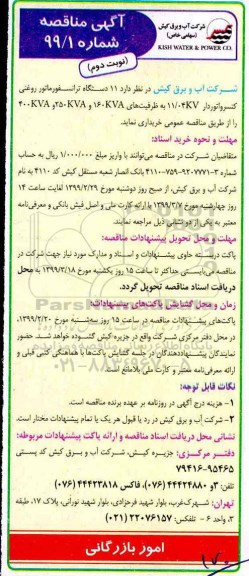 آگهی مناقصه
شماره ۹۹/۱
(نوبت دوم)
شرکت آب و برق کیش
(سهامی خاص)
KISH WATER & POWER CO.
شرکت آب و برق کیش در نظر دارد ۱۱ دستگاه ترانسفورماتور روغنی
کنسرواتوردار ۱۱/۰۴KV به ظرفیت‌های ۱۶۰KVA و ۲۵۰KVA و ۴۰۰KVA
را از طریق مناقصه عمومی خریداری نماید.
مهلت و نحوه خرید اسناد:
متقاضیان شرکت در مناقصه می‌توانند با واریز مبلغ ۱/۰۰۰/۰۰۰ ریال به حساب
شماره ۳-۹۲۰۷۷۷۱-۷۵۹-۴۱۱۰ بانک انصار شعبه مستقل کیش کد ۴۱۱۰ به نام
شرکت آب و برق کیش، از صبح روز دوشنبه مورخ ۱۳۹۹/۲/۲۹ لغایت ساعت ۱۴
روز چهارشنبه مورخ ۱۳۹۹/۳/۷ با ارائه کارت ملی و اصل فیش بانکی و معرفی‌نامه
معتبر به یکی از دو نشانی ذیل مراجعه نمایند.
مهلت و محل تحویل پیشنهادات مناقصه:
پاکت دربسته حاوی پیشنهادات و اسناد و مدارک مورد نیاز جهت شرکت در
مناقصه می‌بایستی حداکثر تا ساعت ۱۵ روز یکشنبه مورخ ۱۳۹۹/۳/۱۸ به محل
دریافت اسناد مناقصه تحویل گردد.
زمان و محل گشایش پاکت‌های پیشنهادات:
پاکت‌های پیشنهادات مناقصه در ساعت ۱۵ روز سه‌شنبه مورخ ۱۳۹۹/۳/۲۰
در محل دفتر مرکزی شرکت واقع در جزیره کیش گشوده خواهد شد. حضور
نمایندگان پیشنهاددهندگان در جلسه گشایش پاکت‌ها با هماهنگی کتبی قبلی و
ارائه معرفی‌نامه معتبر و کارت ملی بلامانع است.
نکات قابل توجه:
۱- هزینه درج آگهی در روزنامه بر عهده برنده مناقصه است.
۲- شرکت آب و برق کیش در رد یا قبول هر یک یا تمام پیشنهادات مختار است.
نشانی محل دریافت اسناد مناقصه و ارائه پاکت پیشنهادات مربوطه:
دفتر مرکزی: جزیره کیش، شرکت آب و برق کیش کد پستی
۷۹۴۱۶-۹۵۴۶۵
تلفن: ۳و ۴۴۴۲۴۸۸۰ (۰۷۶)، فاکس ۴۴۴۲۳۸۱۸ (۰۷۶)
تهران: شهرک غرب، بلوار شهید فرحزادی، بلوار شهید نورانی، پلاک ۱۷، طبقه
۳، واحد ۶ - تلفکس: ۲۲۰۷۶۱۵۷ (۰۲۱)
امور بازرگانی